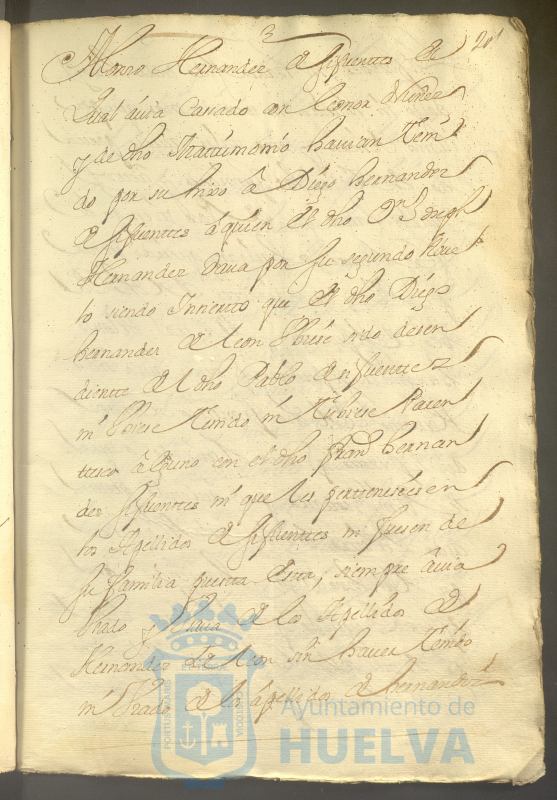 3
201
Alonso Hernandez de sifuentes el
qual avia Cassado con leonor Nuñez
y de dho Matrimonio havian teni
do por su hixo â Diego hernandez
de sifuentes â quien el dho Dn Joseph
Hernandez dava por su segundo Abue
lo siendo Incierto que el dho Diego
hernandez de leon Vbiese sido desen
diente del dho Pablo de sifuentez
ni Vbiese tenido ni tubiese Paren
tesco alguno con el dho Franco hernan
dez sifuentes ni que les pertenesiesen
los Apellidos de sifuentes ni fuesen de
su familia puesta esta, siempre âvia
Vsado y Vsava de los Apellidos de
Hernandez de leon sin haver tenido
ni Vsado de los apellidos de hernandez
PORTUS MARIS ET TERRAE CUSTODIA
Ayuntamiento de
HUELVA